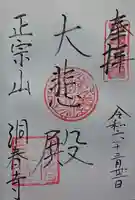 奉拝
大悲殿
令和六年三月四日
正宗山
洞春寺